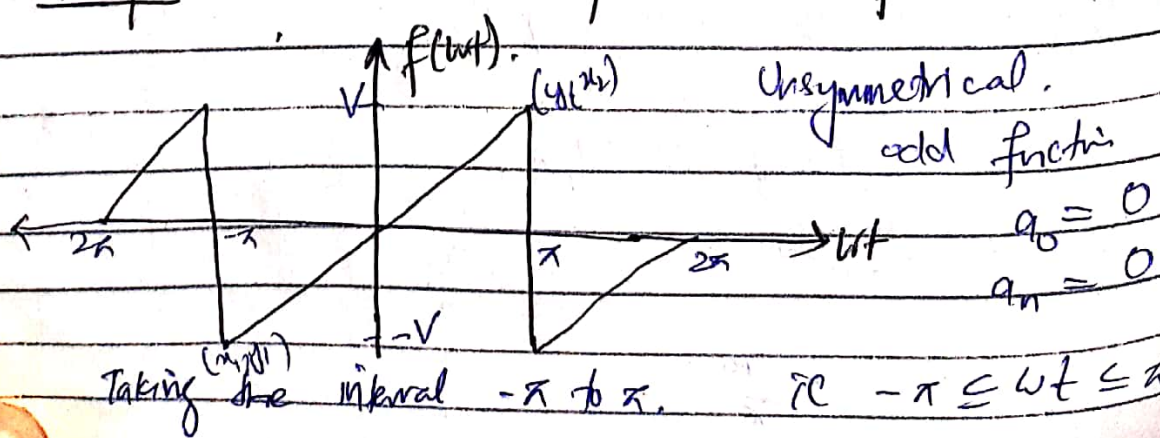 f(wt).
V
(y1x2)
Unsymmetrical.
odd functin
a₀ = 0
2π
-π
π
2π
wt
aₙ = 0
-V
(x1,y1)
Taking the interval -π to π. ie -π ≤ wt ≤ π